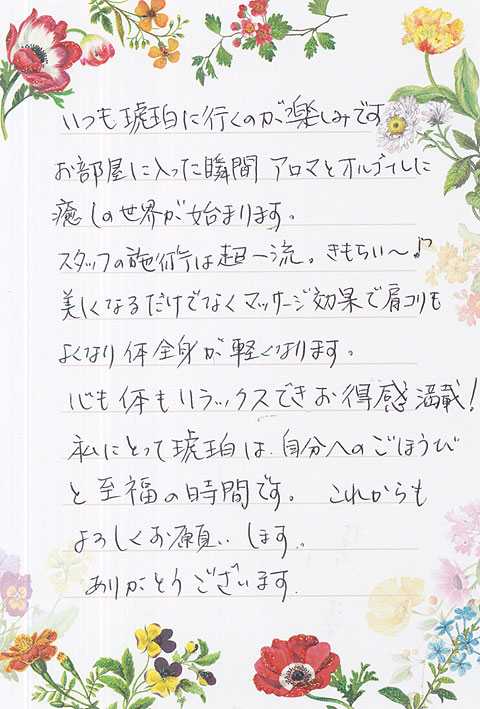 いつも琥珀に行くのが楽しみです
お部屋に入った瞬間 アロマとオルゴールに
癒しの世界が始まります。
スタッフの施術は超一流。きもちぃ〜♪
美しくなるだけでなくマッサージ効果で肩コリも
よくなり体全身が軽くなります。
心も体もリラックスできお得感満載!
私にとって琥珀は、自分へのごほうび
と至福の時間です。 これからも
よろしくお願いします。
ありがとうございます。